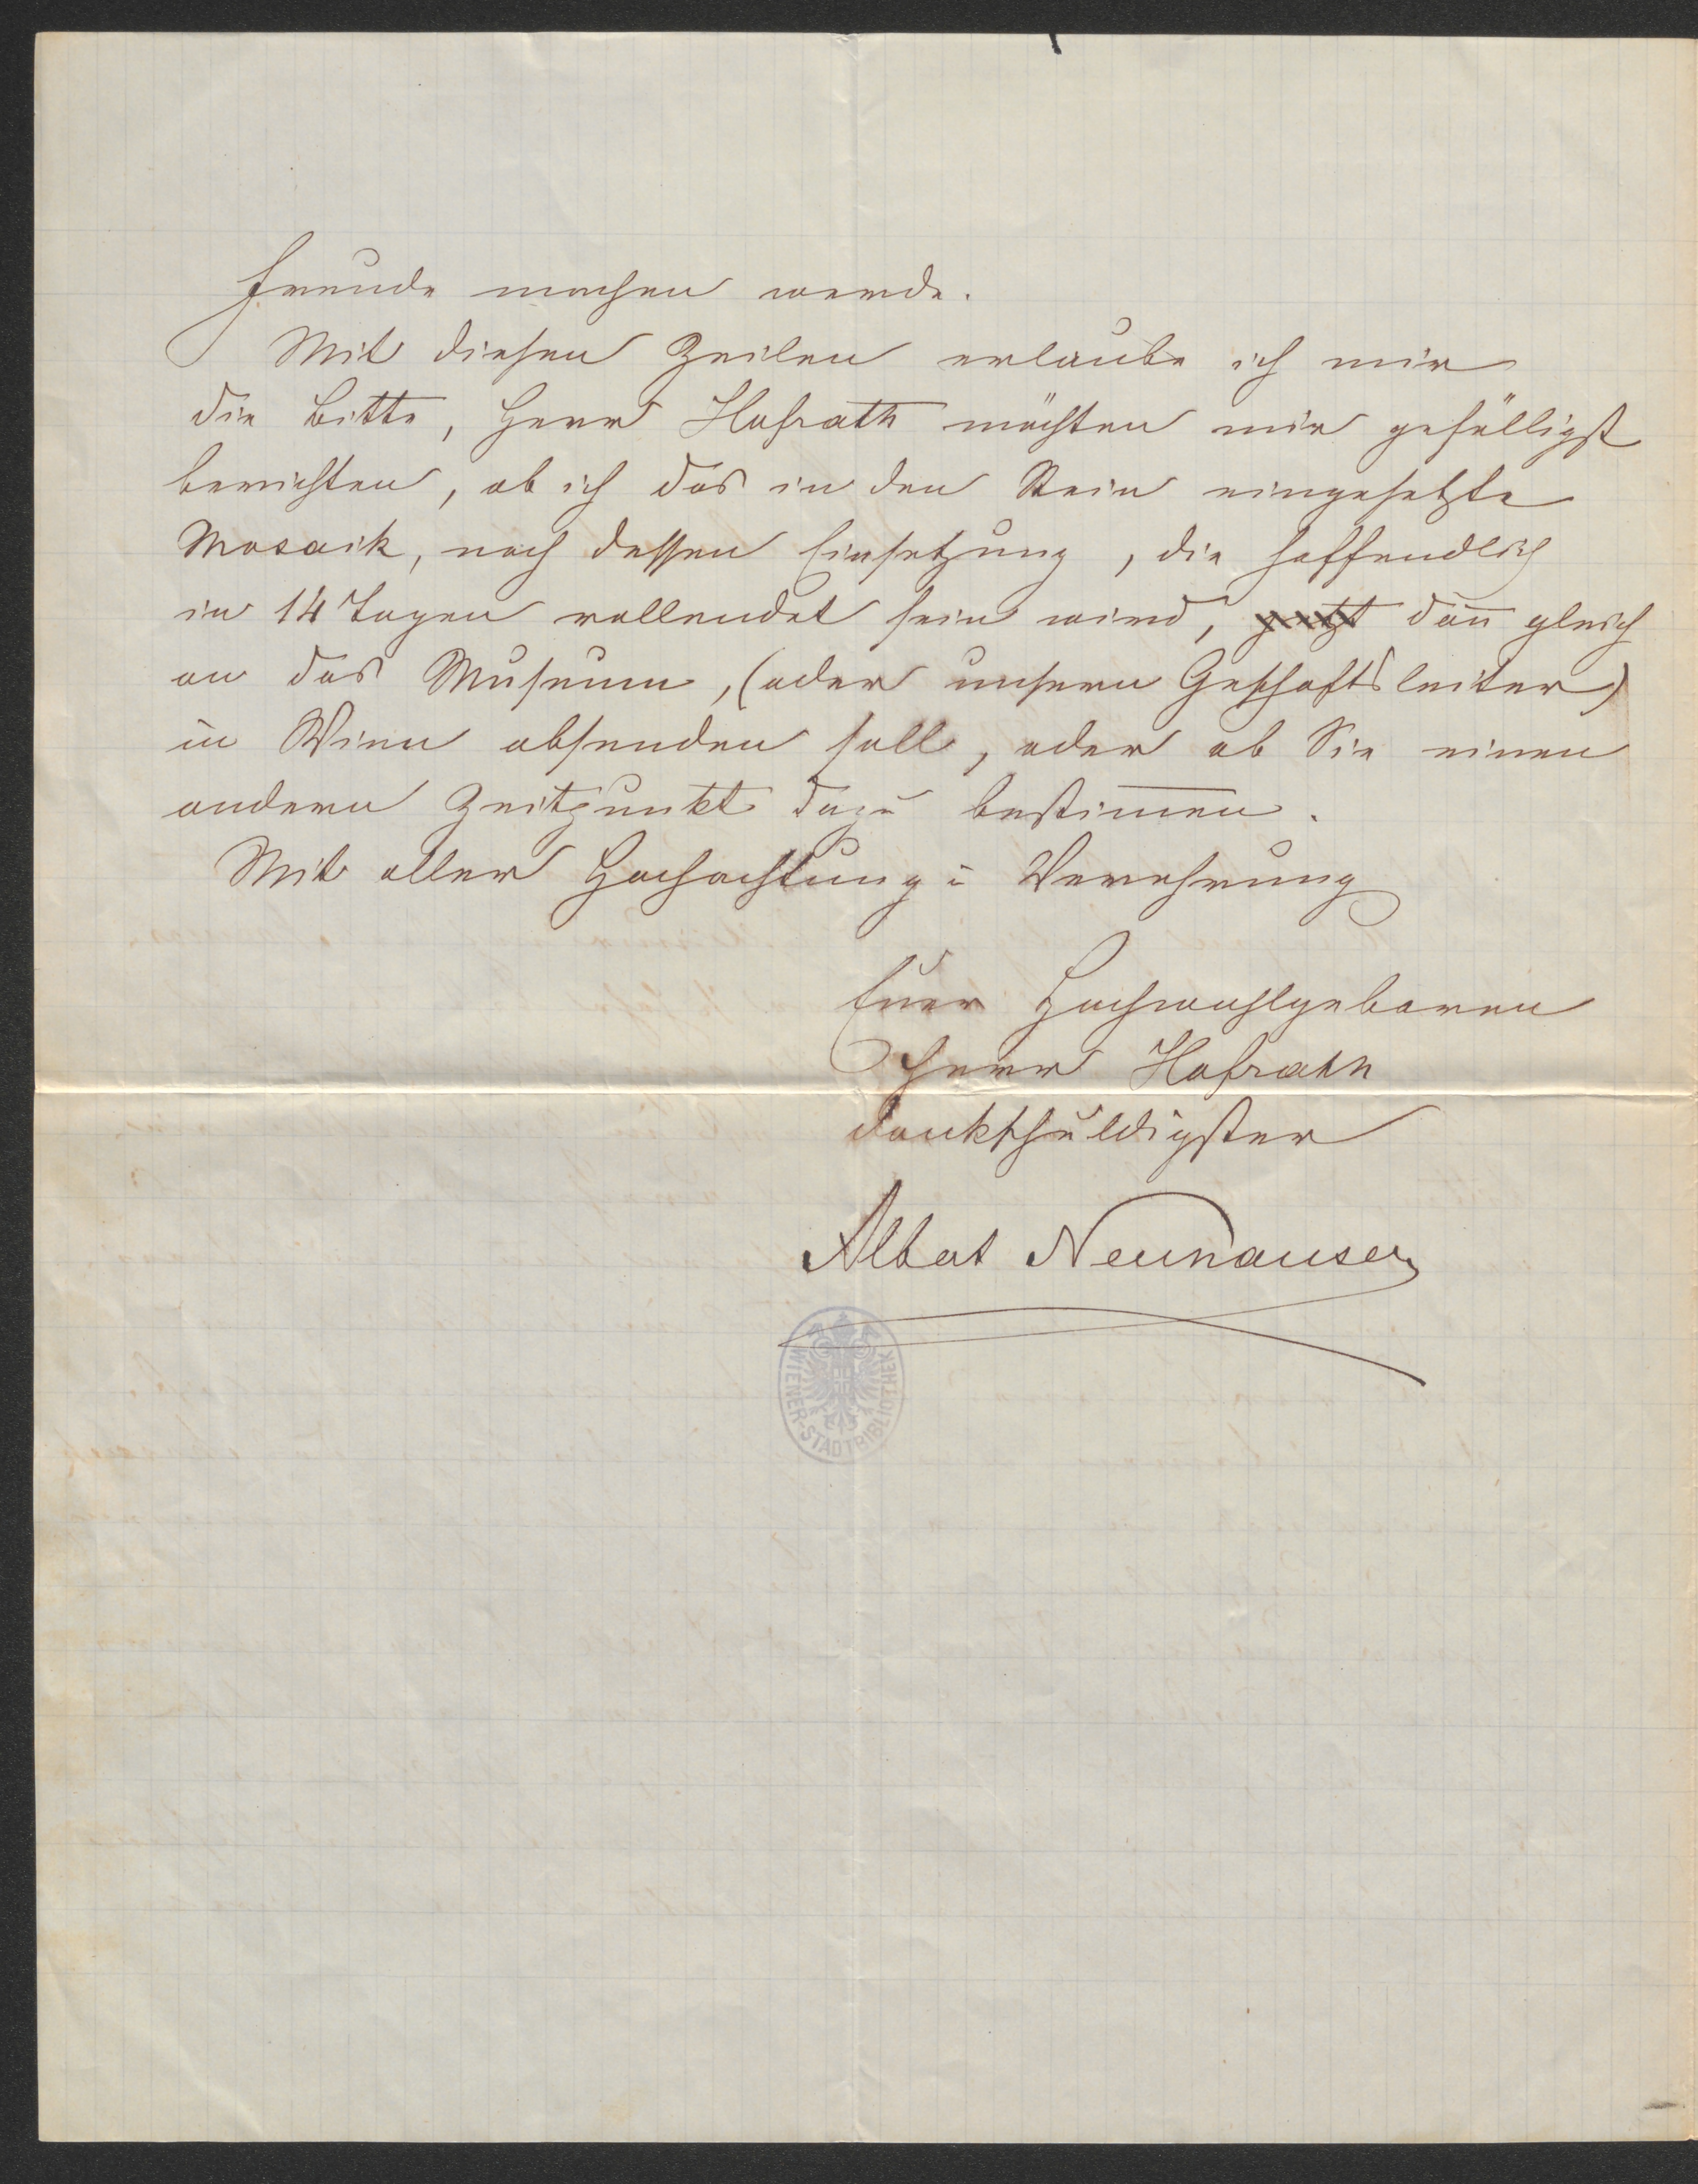 Freude machen werde.
Mit diesen Zeilen erlaube ich mir
die Bitte, Herr Hofrath möchten mir gefälligst
berichten, ob ich das in den Stein eingesetzte
Mosaik, nach dessen Einsetzung, die hoffendlich
in 14 Tagen vollendet sein wird, jetzt dan̄ gleich
an das Museum, (oder unsern Geschaftsleiter)
in Wien absenden soll, oder ob Sie einen
andern Zeitpunkt dazu bestim̄en.
Mit aller Hochachtung u Verehrung
Euer Hochwohlgeboren
Herrn Hofrath
dankschuldigster
Albert Neuhauser
WIENER-STADTBIBLIOTHEK